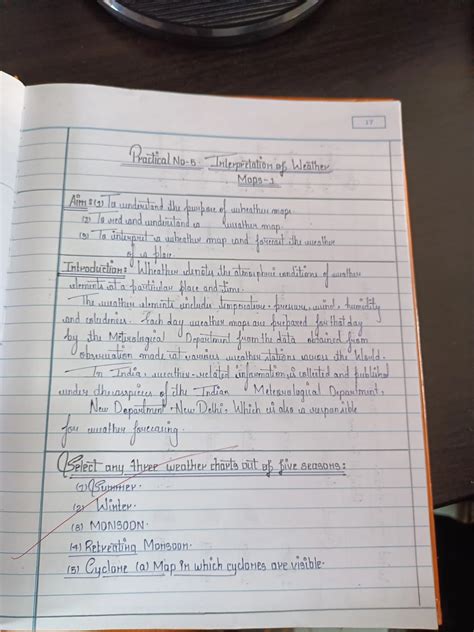 17
Practical No-5. Interpretation of Weather
Maps-1
Aim: (1) To understand the purpose of weather map.
(2) To red and understand a weather map.
(3) To interpret a weather map and forecast the weather
of a place.
Introduction: Wheather denots the atmospheric conditions of weather
elements at a particular place and time.
The weather elements include temperature, pressure, wind, humidity
and cloudiness. Each day weather maps are prepared for that day
by the Metrological Department from the data obtained from
observation made at various weather stations across the World.
In India, weather-related information is collected and published
under the auspices of the Indian Meteorological Department,
New Department, New Delhi, Which is also is responsible
for weather forecasing.
Select any three weather charts out of five seasons:
(1) Summer.
(2) Winter.
(3) MONSOON.
(4) Retreating Monsoon.
(5) Cyclone (a) Map in which cyclones are visible.